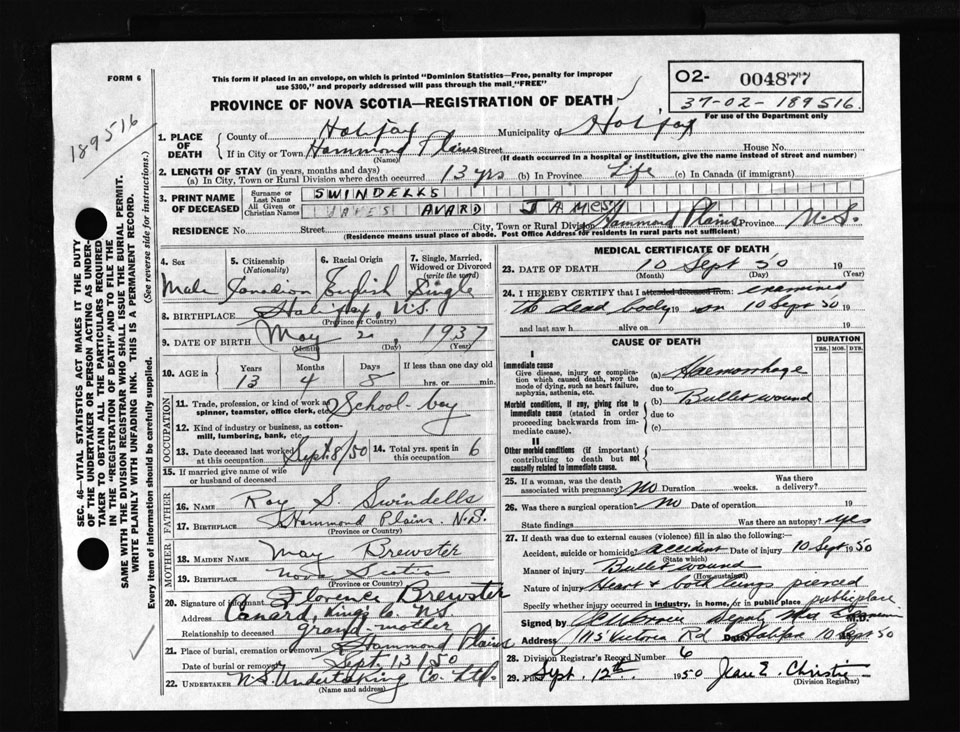 FORM 6
This form if placed in an envelope, on which is printed "Dominion Statistics—Free, penalty for improper
use $300," and properly addressed will pass through the mail "FREE"
PROVINCE OF NOVA SCOTIA—REGISTRATION OF DEATH
O2- 004877
37-02-189516
For use of the Department only
189516
SEC. 46—VITAL STATISTICS ACT MAKES IT THE DUTY
OF THE UNDERTAKER OR PERSON ACTING AS UNDER-
TAKER TO OBTAIN ALL THE PARTICULARS REQUIRED
IN THE "REGISTRATION OF DEATH" AND TO FILE THE
SAME WITH THE DIVISION REGISTRAR WHO SHALL ISSUE THE BURIAL PERMIT.
WRITE PLAINLY WITH UNFADING INK. THIS IS A PERMANENT RECORD.
Every item of information should be carefully supplied. (See reverse side for instructions.)
1. PLACE OF DEATH County of Halifax Municipality of Halifax
If in City or Town Hammond Plains Street House No.
(Name) (If death occurred in a hospital or institution, give the name instead of street and number)
2. LENGTH OF STAY (in years, months and days)
(a) In City, Town or Rural Division where death occurred 13 yrs (b) In Province Life (c) In Canada (if immigrant)
3. PRINT NAME OF DECEASED Surname or Last Name SWINDELLS
All Given or Christian Names JAMES AVARD JAMES
RESIDENCE No. Street City, Town or Rural Division Hammond Plains Province N.S.
(Residence means usual place of abode. Post Office Address for residents in rural parts not sufficient)
4. Sex Male
5. Citizenship (Nationality) Canadian
6. Racial Origin English
7. Single, Married, Widowed or Divorced (write the word) Single
8. BIRTHPLACE Halifax, N.S.
(Province or Country)
9. DATE OF BIRTH May 2, 1937
(Month) (Day) (Year)
10. AGE in Years 13 Months 4 Days 8 If less than one day old hrs. or min.
OCCUPATION
11. Trade, profession, or kind of work as spinner, teamster, office clerk, etc. School-boy
12. Kind of industry or business, as cotton-mill, lumbering, bank, etc.
13. Date deceased last worked at this occupation Sept. 8/50
14. Total yrs. spent in this occupation 6
15. If married give name of wife or husband of deceased
FATHER
16. NAME Roy S. Swindells
17. BIRTHPLACE Hammond Plains. N.S.
(Province or Country)
MOTHER
18. MAIDEN NAME May Brewster
19. BIRTHPLACE Nova Scotia
(Province or Country)
20. Signature of informant Florence Brewster
Address Canard, King's Co. N.S.
Relationship to deceased grand-mother
21. Place of burial, cremation or removal Hammond Plains
Date of burial or removal Sept. 13/50
22. UNDERTAKER N.S. Undertaking Co. Ltd.
(Name and address)
MEDICAL CERTIFICATE OF DEATH
23. DATE OF DEATH 10 Sept 50 19
(Month) (Day) (Year)
24. I HEREBY CERTIFY that I attended deceased from examined
the dead body on 10 Sept 50 19
and last saw h alive on 19
CAUSE OF DEATH
DURATION
YRS. MOS. DYS.
I
Immediate cause
Give disease, injury or complication which caused death, NOT the mode of dying, such as heart failure, asphyxia, asthenia, etc.
(a) Haemorrhage
due to
(b) Bullet wound
Morbid conditions, if any, giving rise to immediate cause (stated in order proceeding backwards from immediate cause).
due to
(c)
II
Other morbid conditions (if important) contributing to death but not causally related to immediate cause.
25. If a woman, was the death associated with pregnancy? No Duration weeks. Was there a delivery?
26. Was there a surgical operation? No Date of operation 19
State findings Was there an autopsy? yes
27. If death was due to external causes (violence) fill in also the following:
Accident, suicide or homicide? accident Date of injury 10 Sept 1950
(State which)
Manner of injury Bullet wound
(How sustained)
Nature of injury Heart + both lungs pierced
Specify whether injury occurred in industry, in home, or in public place public place
Signed by Deputy Med Examiner M.D.
Address 115 Victoria Rd Date Halifax 10 Sept 50
28. Division Registrar's Record Number 6
29. Filed Sept. 12th. 1950 Jean E. Christie
(Division Registrar)